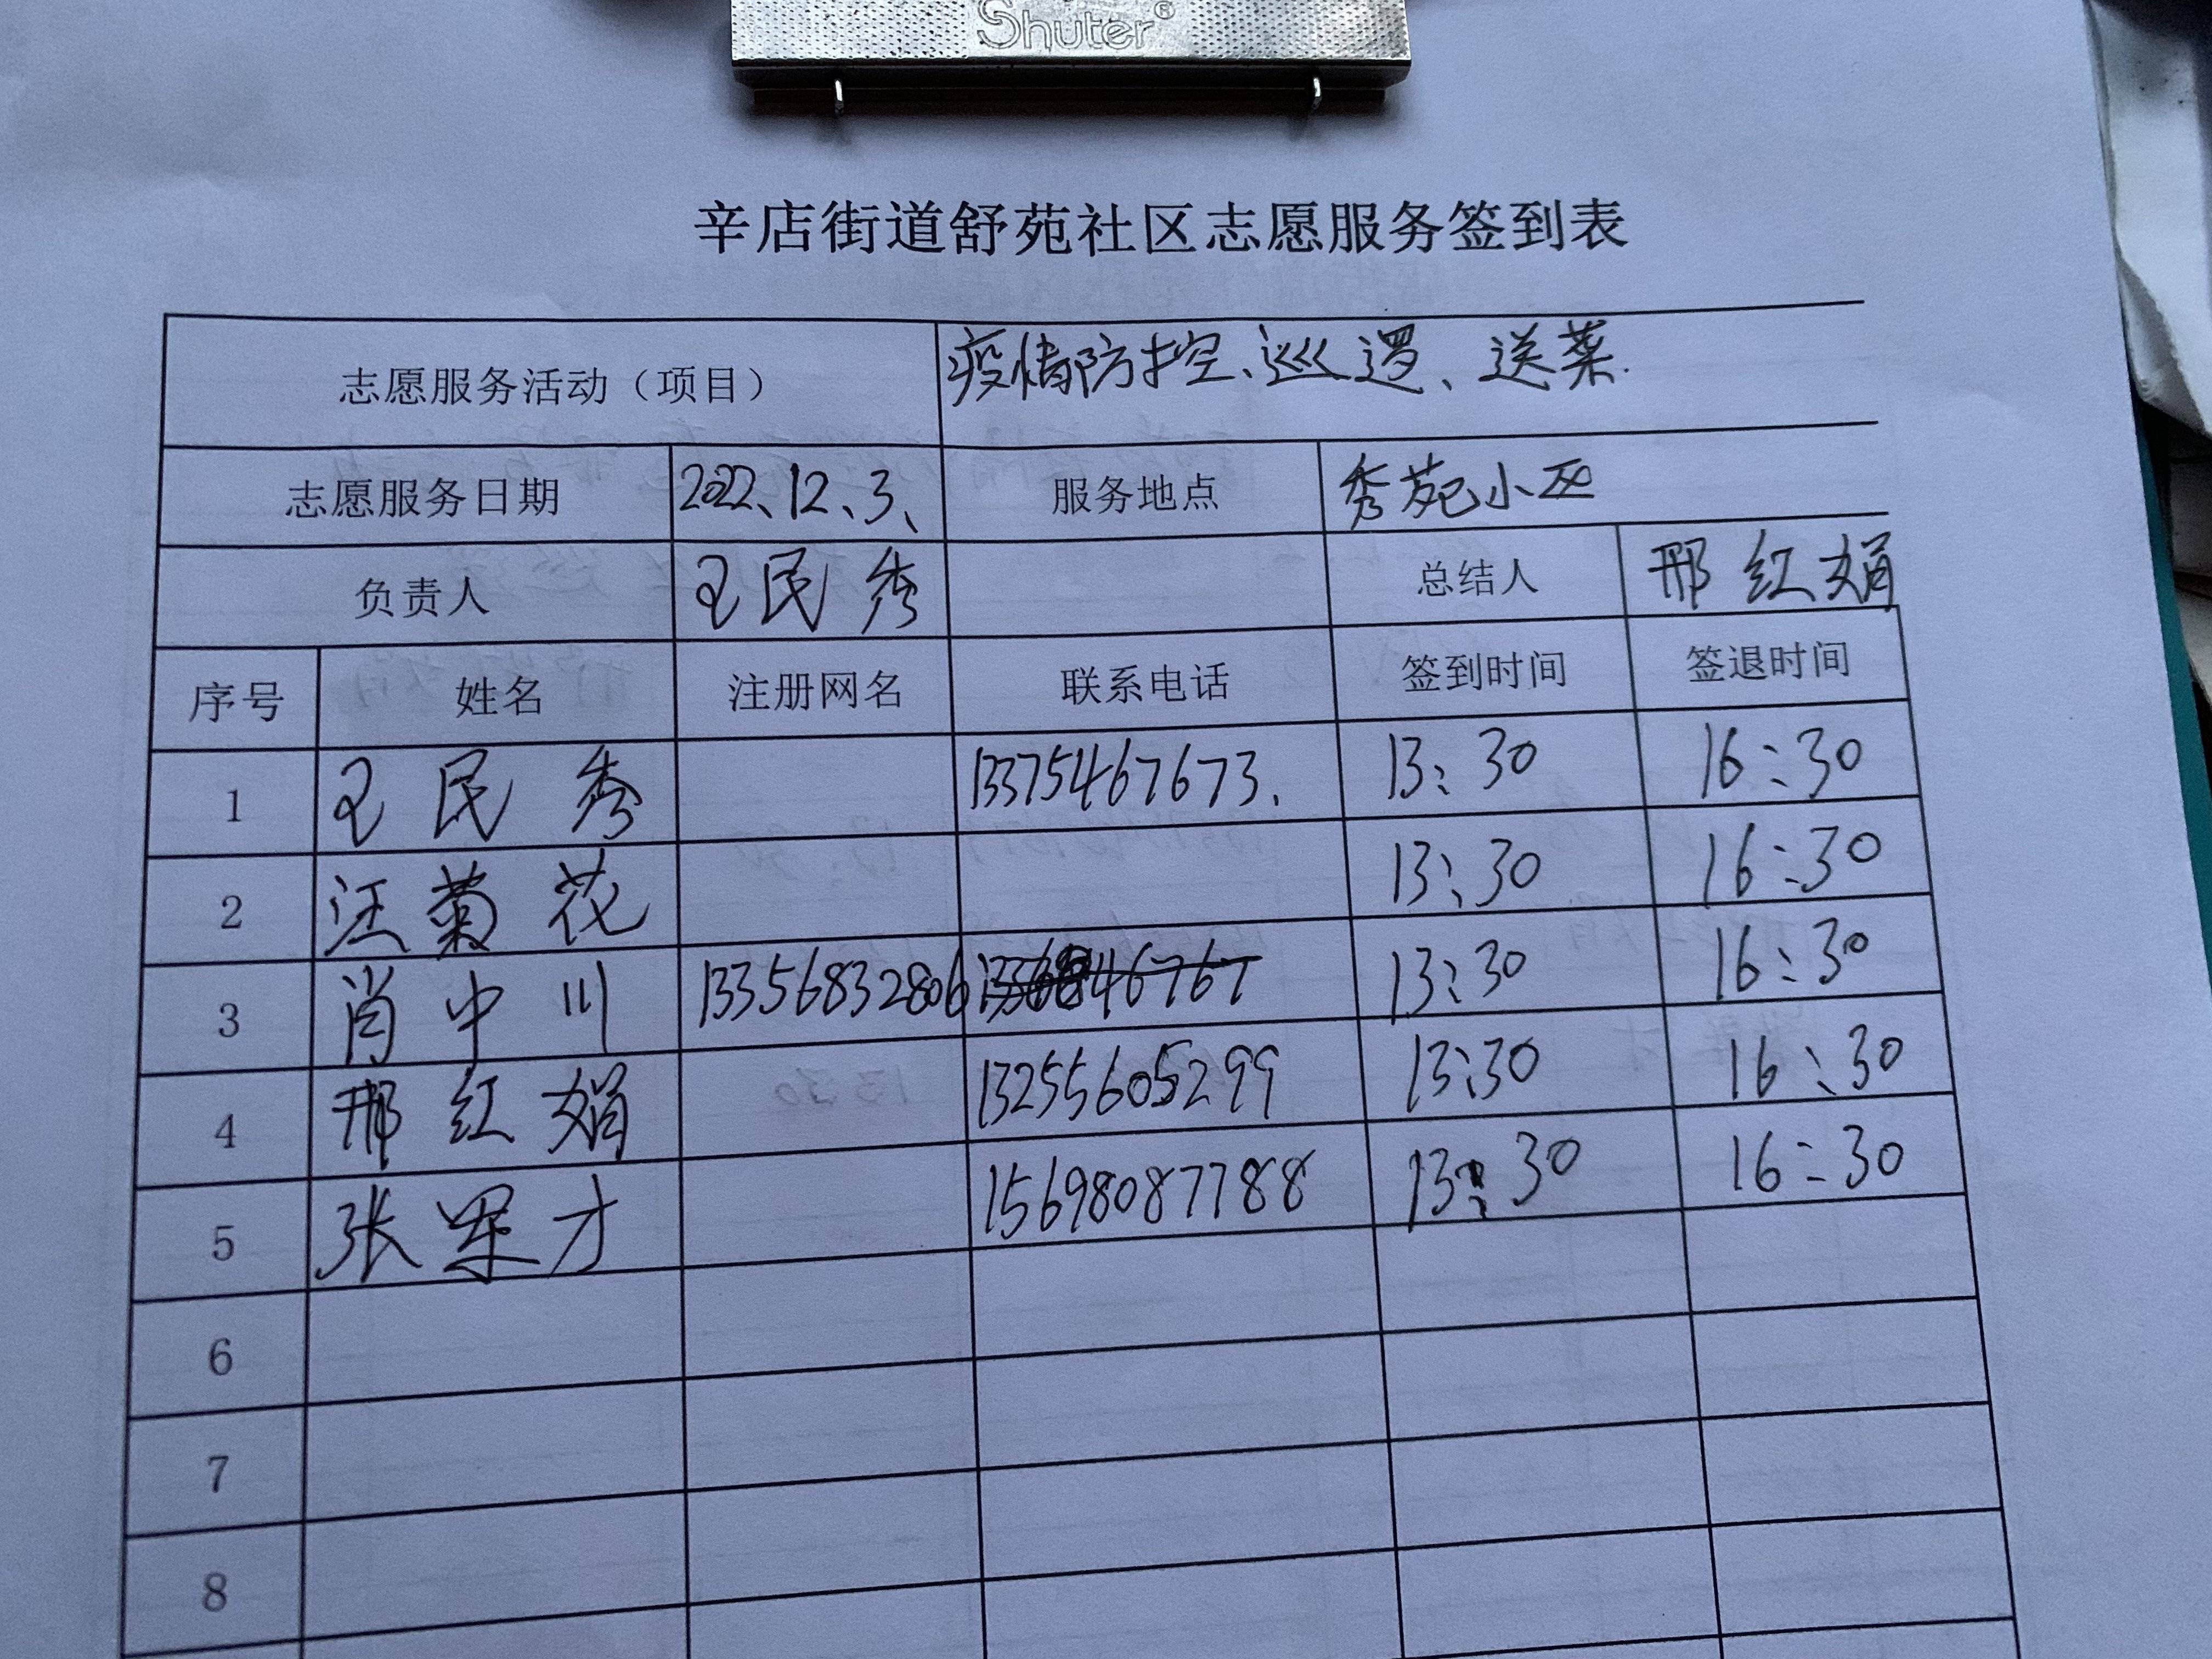 Shuter®
辛店街道舒苑社区志愿服务签到表
志愿服务活动（项目） 疫情防控、巡逻、送菜.
志愿服务日期 2022、12、3、 服务地点 秀苑小区
负责人 王民秀 总结人 邢红娟
序号 姓名 注册网名 联系电话 签到时间 签退时间
1 王民秀 13375467673. 13:30 16:30
2 汪菊花 13:30 16:30
3 肖中川 13356832806 13:30 16:30
4 邢红娟 13255605299 13:30 16:30
5 张果才 15698087788 13:30 16:30
6
7
8